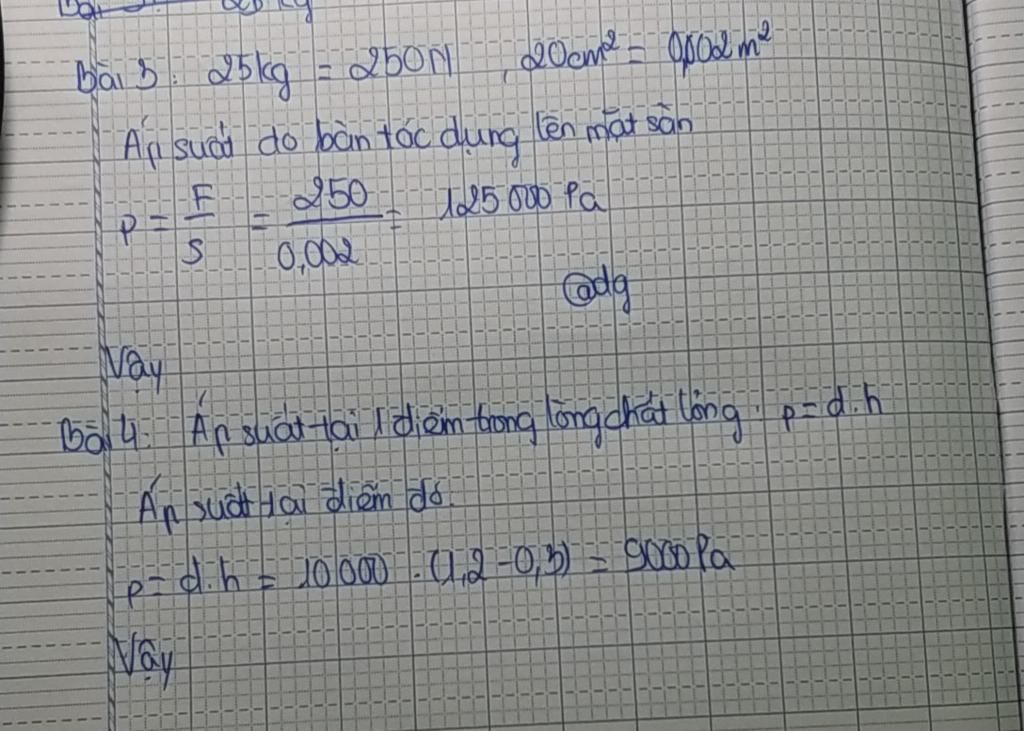 Bài 3: 25kg = 250N , 20cm² = 0,002m²
Áp suất do bàn tác dụng lên mặt sàn
p = F/S = 250/0,002 = 125000 Pa
@dg
Vậy
Bài 4: Áp suất tại 1 điểm trong lòng chất lỏng: p = d.h
Áp suất tại điểm đó.
p = d.h = 10000 . (1,2 - 0,3) = 9000Pa
Vậy